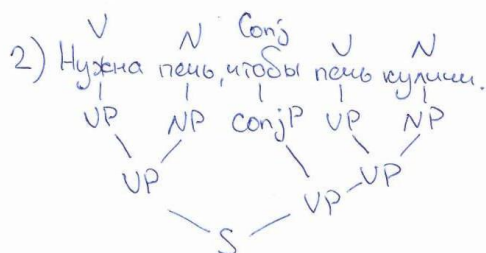 V N Conj V N
2) Нужна печь, чтобы печь куличи.
VP NP ConjP VP NP
VP VP VP
S